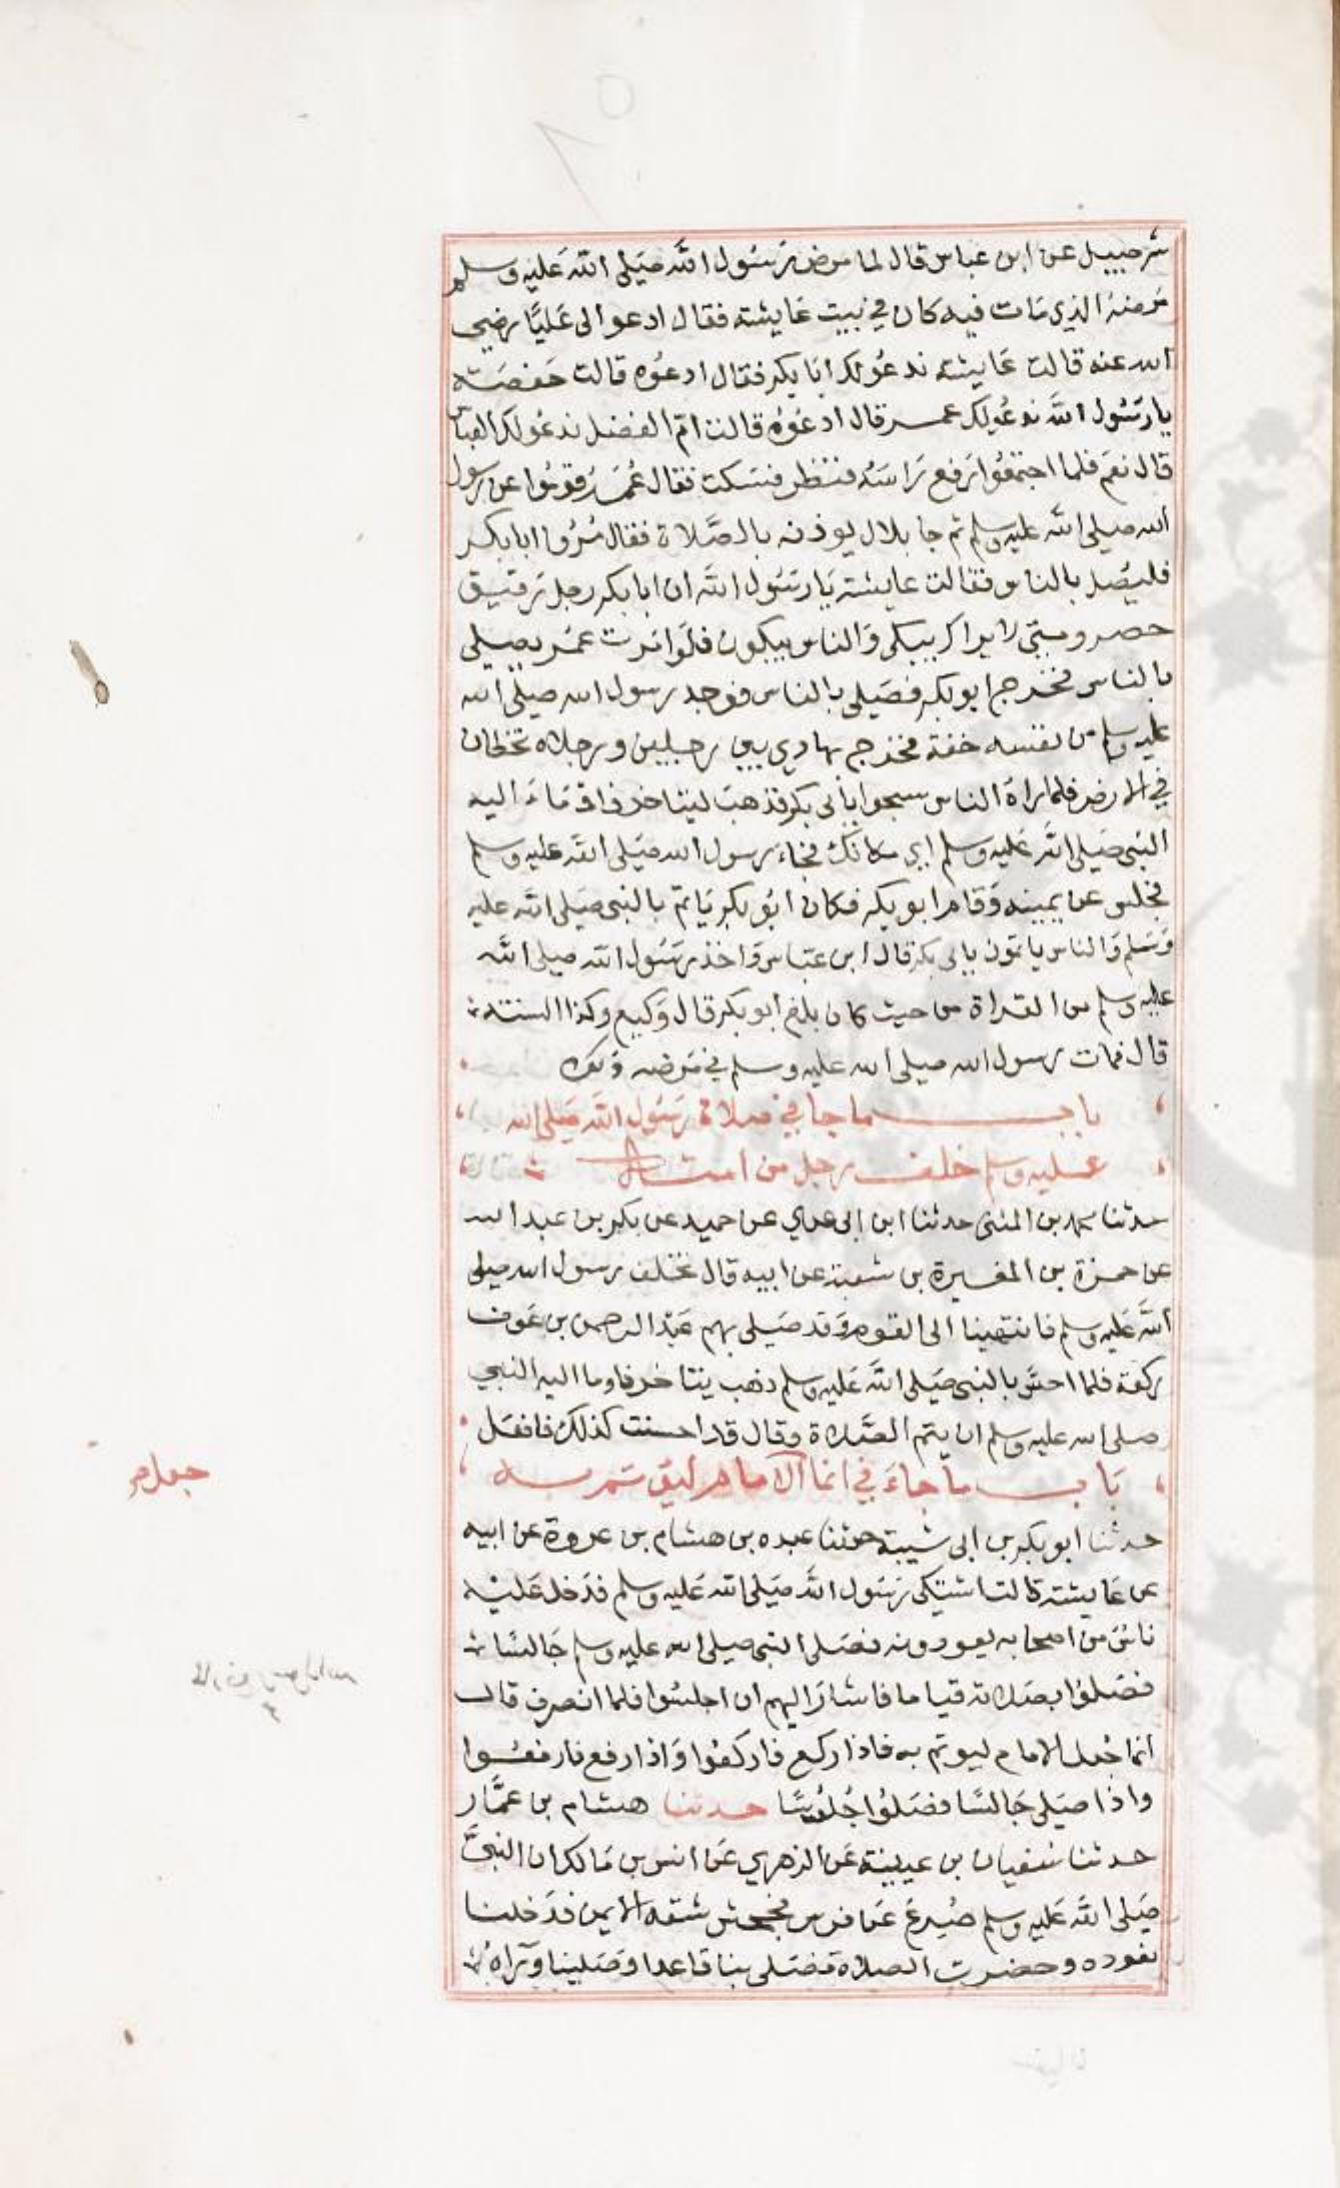 شرحبيل عن ابن عباس قال لما مرض رَسُول الله صَلى الله عَليه وسلم
مَرضهُ الذي مَات فيه كان في بيت عَايشة فقال ادعو الى عَليًا رضي
الله عنه قالت عَايشة ندعُو لك ابَا بكر فقال ادعوُه قالت حَفصَة
يا رسُول الله ندعُو لك عمر قال ادعُوُه قالت امّ الفضل ندعُو لك العباس
قال نعَم فلما اجتمعُوا رَفع رَاسَهُ فنظر فسَكت فقال عُمَرُ قومُوا عن رسول
الله صلى الله عليه وسلم ثم جا بلال يوذنه بالصَّلاة فقال مُرُوا ابا بكر
فليصَل بالناس فقالت عايشة يَا رسَول الله ان ابا بكر رجل رَقيق
حصر ومتى لا يراك يبكى وَالناس يبكون فلَو امَرت عمَر يصلى
بالناس فخرج ابو بكر فصَلى بالناس فوجد رسول الله صلى الله
عليه وسلم من نفسه خفة فخرج يهادي بين رجلين ورجلاه تخطان
في الارض فلما راهُ الناس سبحوا بأبى بكر فذهبَ ليتاخر فاوْمَاءَ اليه
النبي صَلى الله عَليه وسلم اي مكانك فجاءَ رسول الله صَلى الله عليه وسلم
فجلس عن يمينه وَقام ابو بكر فكان ابُو بكر يَاتمّ بالنبي صَلى الله عليه
وَسَلم وَالناس ياتمّون بابى بكر قال ابن عبّاس وَاخذ رسَول الله صلى الله
عليه وسلم من القراة من حيث كان بلغ ابو بكر قال وَكيع وكذا السنة
قال فمات رسول الله صلى الله عليه وسلم في مَرضه ذلك
باب ما جا في صلاة رسَول الله صَلى الله
عليه وسلم خلف رجل من امته
حدثنا محمد بن المثنى حدثنا ابن ابى عدي عن حميد عن بكر بن عبد الله
عن حمزة بن المغيرة بن شعبة عن ابيه قال تخلف رسول الله صلى
الله عَليه وسلم فانتهينا الى القوم وَقد صَلى بهم عَبْد الرحمن بن عَوف
ركعَة فلما احسَّ بالنبى صَلى الله عَليه وسلم ذهب يتاخر فاوما اليه النبي
صلى الله عليه وسلم ان يتم الصَّلاة وقال قد احسنت كذلك فافعَل
بَاب ما جاءَ في انما الامام ليؤتم به
جعل
حدثنا ابو بكر بن ابى شيبة حدثنا عبده بن هشام بن عروة عن ابيه
عن عَايشة قالت اشتكى رَسَول الله صَلى الله عَليه وسلم فدَخل عَليْه
ناسٌ من اصحابه يعودونه فصَلى النبي صلى الله عليه وسلم جَالسًا
فصَلوْا بصَلاته قياما فاشارَ اليهم ان اجلسُوا فلما انصرف قال
انما جُعل الامام ليوتم به فاذا ركع فاركعُوا وَاذا رفع فارفعُوا
واذا صَلى جَالسًا فصَلوُا جُلوُسًا حدثنا هشام بن عمَّار
حدثنا سُفيان بن عيينة عَن الزهري عَن انس بن مَالك ان النبىَّ
صَلى الله عَليه وسلم صُرِعَ عَن فرس فجحش شقه الايمن فدَخلنا
نعُوده وحضرت الصلاة فصَلى بنا قاعدا وَصَلينا ورَاهُ